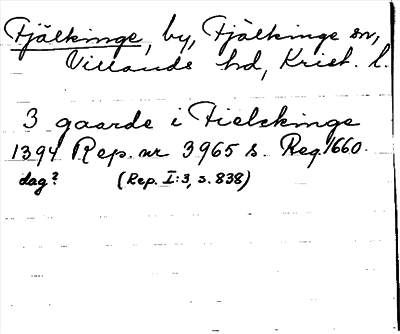 Fjälkinge, by, Fjälkinge sn,
Villands hd, Krist. l.
3 gaarde i Fielckinge
1394 Rep. nr 3965 s. Reg. 1660.
dag? (Rep. I:3, s. 838)